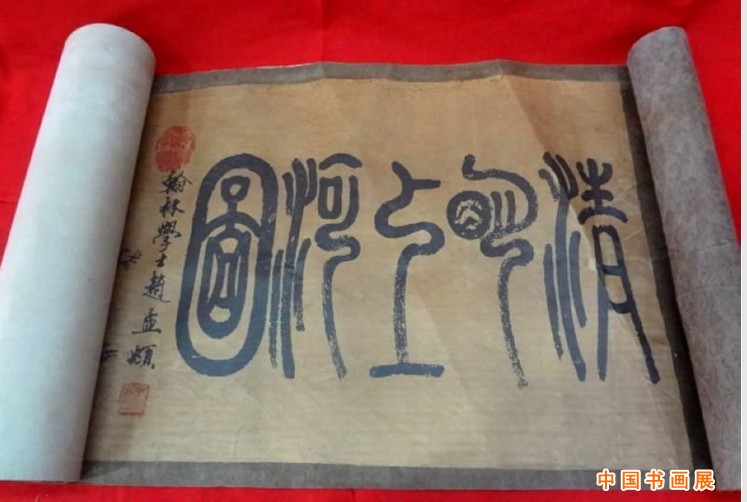 清明上河圖
翰林學士趙孟頫
中国书画展